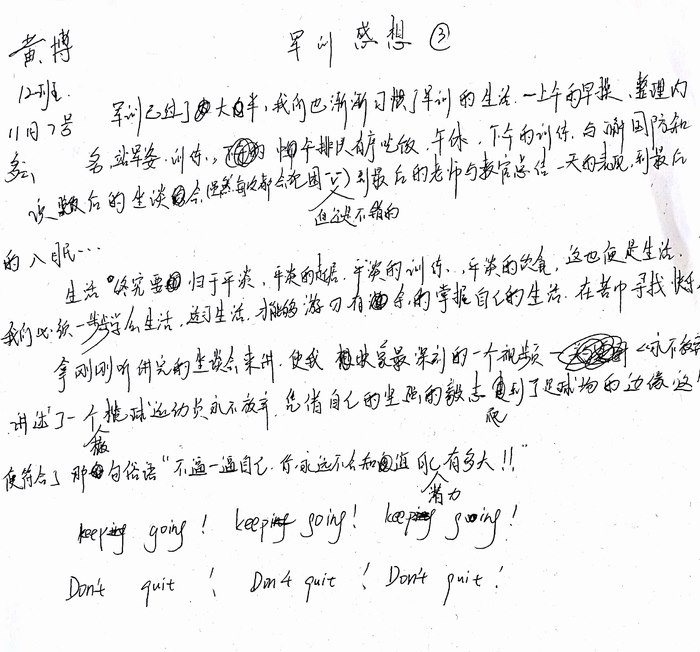 军训感想③
黄博
12班
11月7号
军训已过了大半,我们也渐渐习惯了军训的生活.一上午的早操、整理内
务,站军姿.训练,中午排队有序吃饭.午休,下午的训练.与了解国防知
识 最后的坐谈会(虽然每次都会犯困 但还是不错的)到最后的老师与教官总结一天的表现,到最后
的入眠…
生活终究要归于平淡,平淡的起居.平淡的训练,平淡的饮食,这也便是生活.
我们必须一步步学会生活,适习生活,才能够游刃有余的掌握自己的生活.在苦中寻找快乐.
拿刚刚听讲完的坐谈会来讲.使我印象最深刻的一个视频—《永不放弃
讲述了一个橄榄球运动员永不放弃,凭借自己的坚强的毅志爬到了足球场的边缘 这
便符合了那句俗语“不逼一逼自己.你永远不会知道自己潜力有多大!!”
keep going! keep going! keep going!
Don't quit! Don't quit! Don't quit!